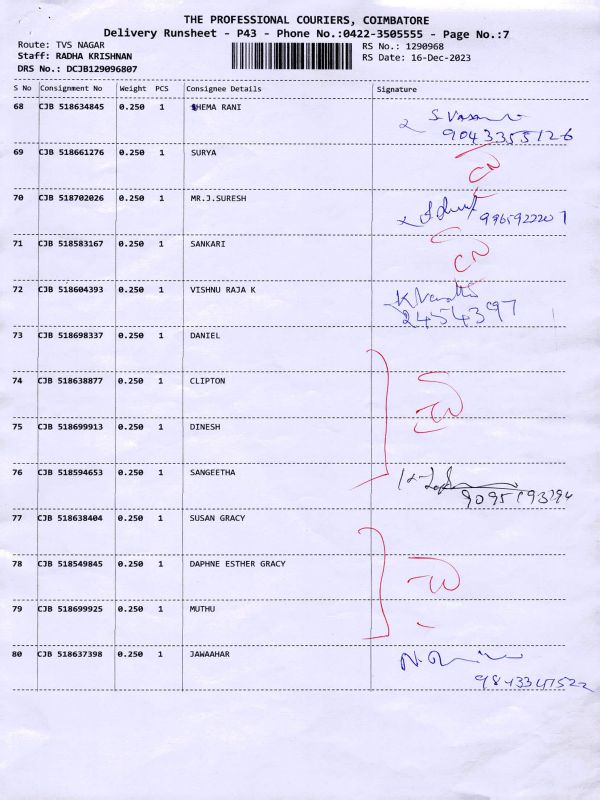 THE PROFESSIONAL COURIERS, COIMBATORE
Delivery Runsheet - P43 - Phone No.:0422-3505555 - Page No.:7
Route: TVS NAGAR
RS No.: 1290968
Staff: RADHA KRISHNAN
RS Date: 16-Dec-2023
DRS No.: DCJB129096807
S No Consignment No Weight PCS Consignee Details Signature
68 CJB 518634845 0.250 1 HEMA RANI
9043355126
69 CJB 518661276 0.250 1 SURYA
CN
70 CJB 518702026 0.250 1 MR.J.SURESH
9965922207
71 CJB 518583167 0.250 1 SANKARI
CN
72 CJB 518604393 0.250 1 VISHNU RAJA K
2454397
73 CJB 518698337 0.250 1 DANIEL
74 CJB 518638877 0.250 1 CLIPTON
75 CJB 518699913 0.250 1 DINESH
76 CJB 518594653 0.250 1 SANGEETHA
77 CJB 518638404 0.250 1 SUSAN GRACY
78 CJB 518549845 0.250 1 DAPHNE ESTHER GRACY
79 CJB 518699925 0.250 1 MUTHU
80 CJB 518637398 0.250 1 JAWAAHAR